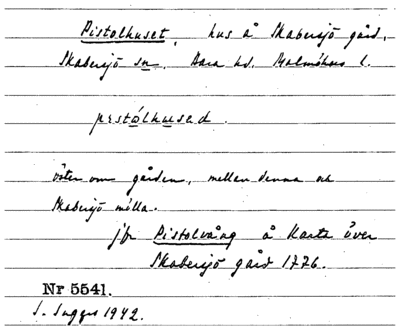 Pistolhuset, hus å Skabersjö gård,
Skabersjö sn. Bara hd. Malmöhus l.
pestólhusad.
öster om gården, mellan denna och
Skabersjö mölla.
jfr Pistolvång å karta över
Skabersjö gård 1776.
Nr 5541.
S. 1942.